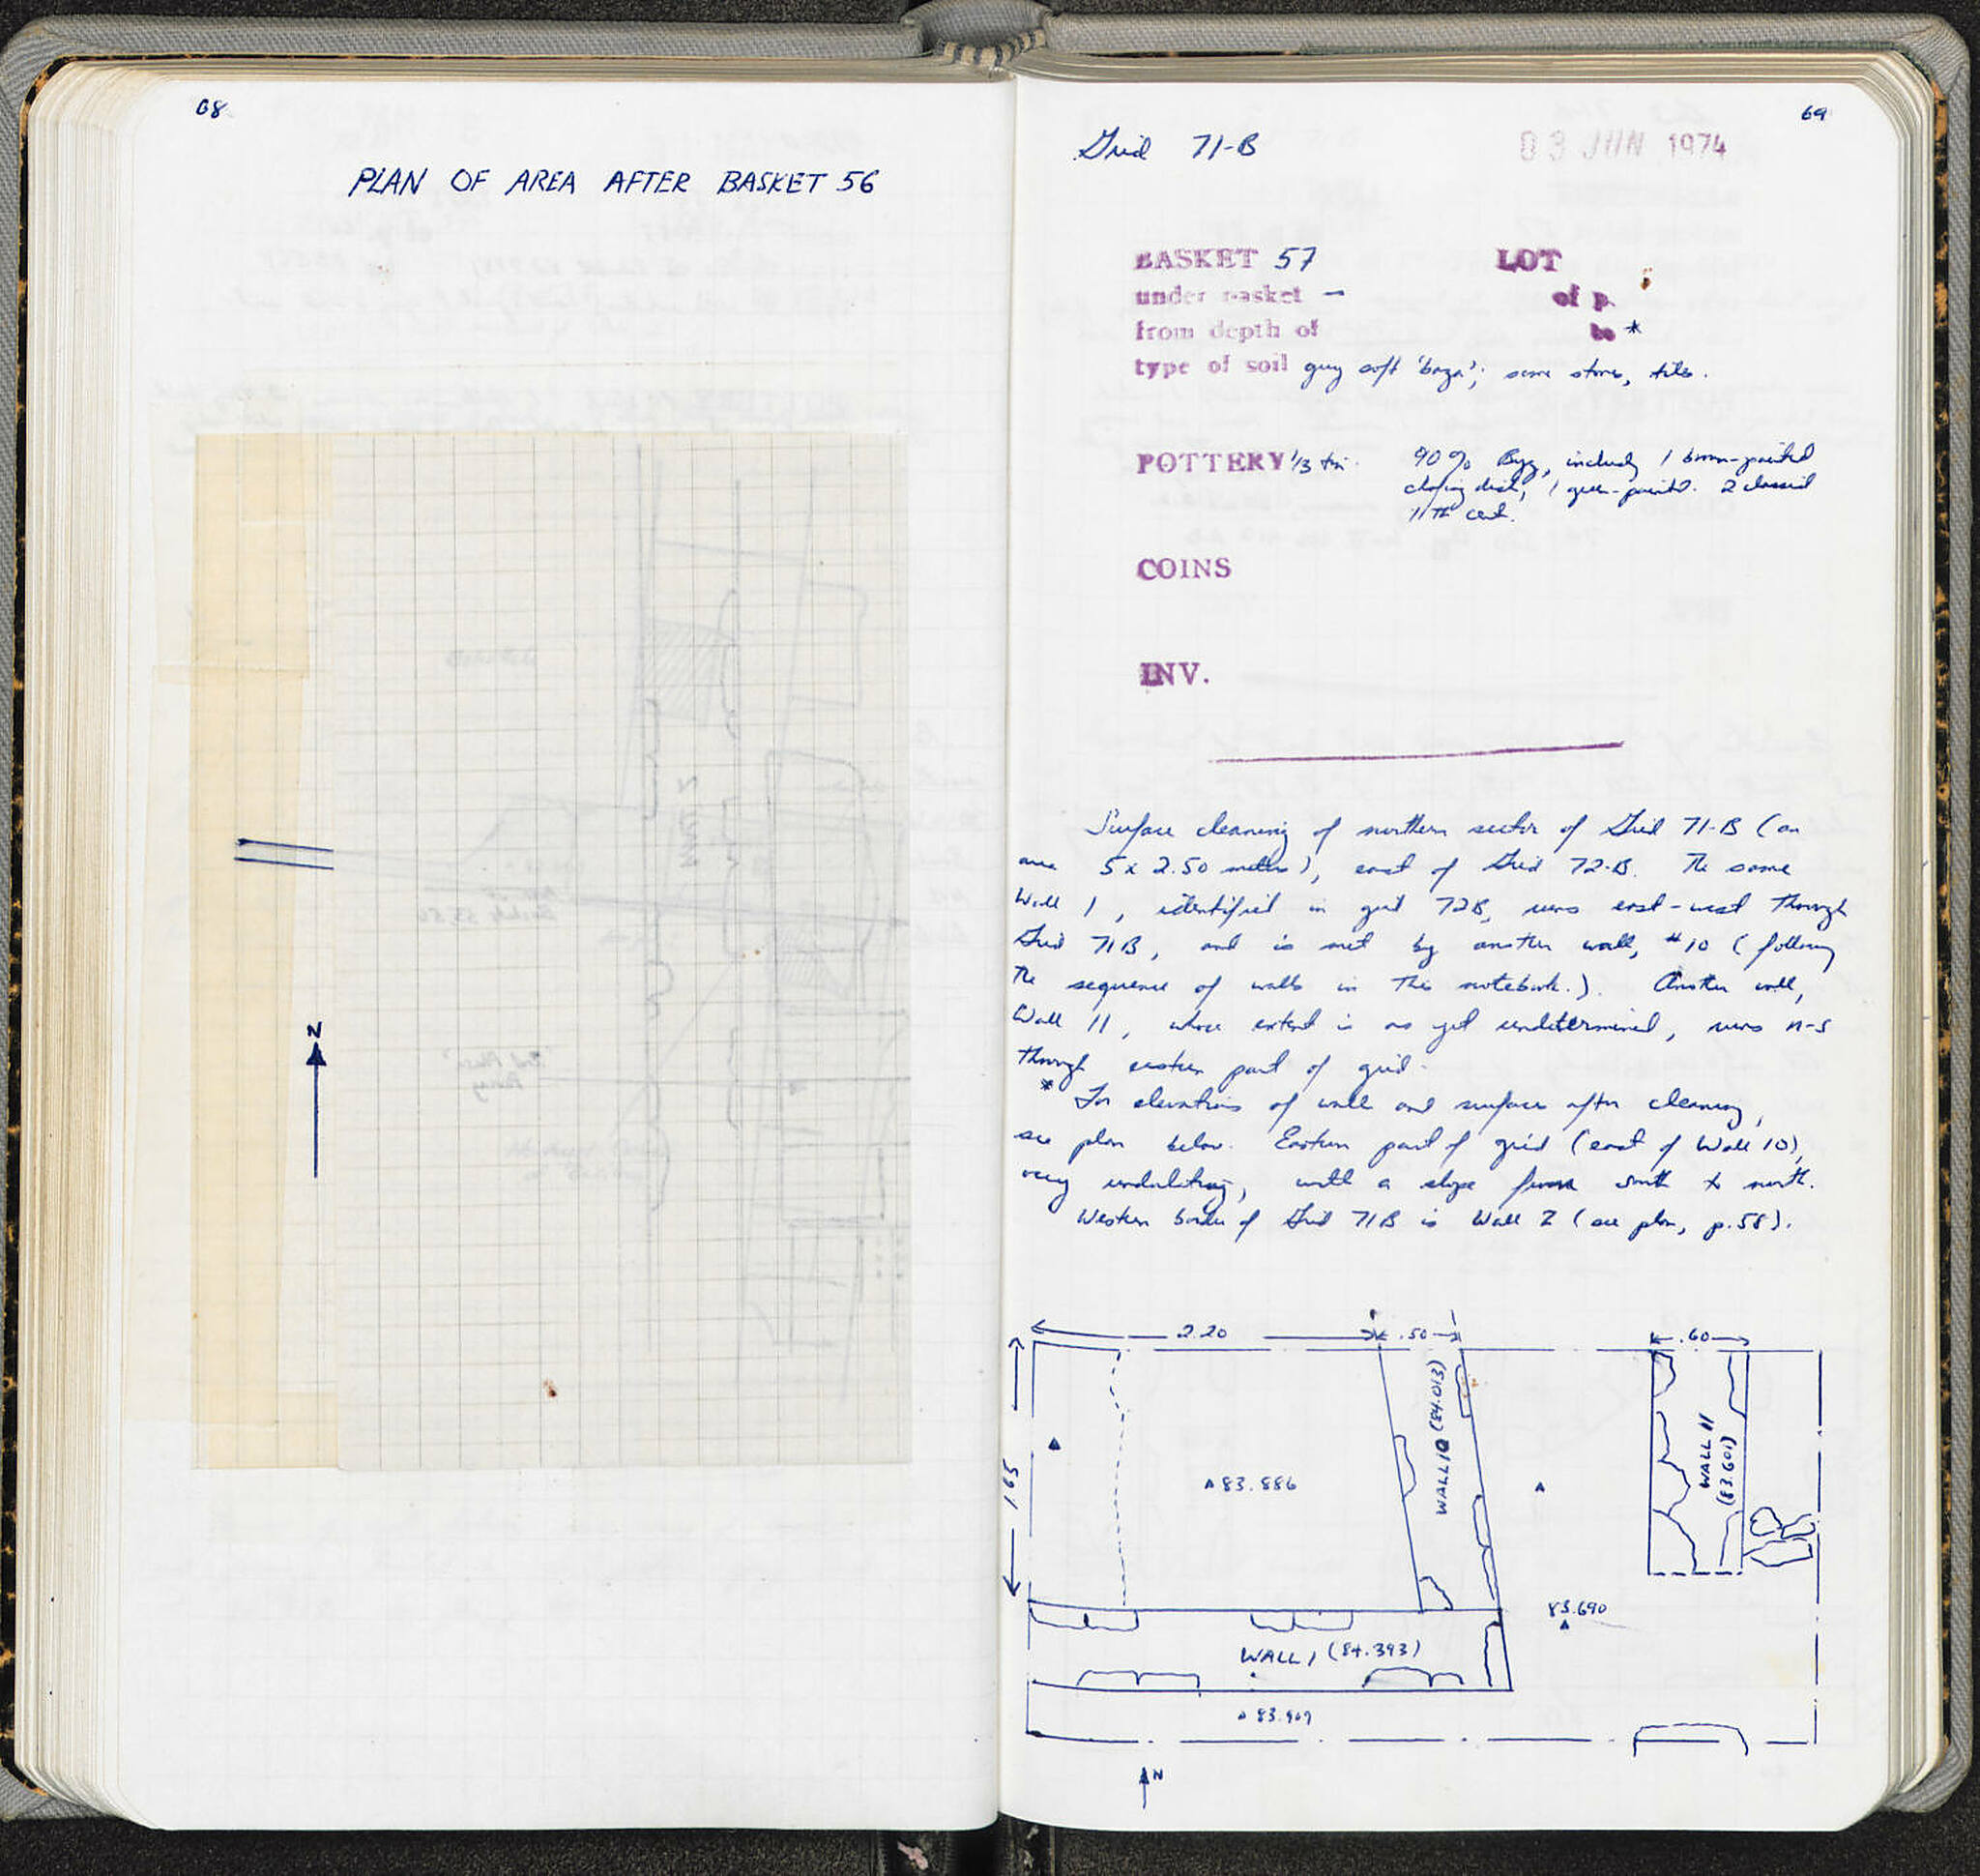 68
PLAN OF AREA AFTER BASKET 56
N
69
Grid 71-B
03 JUN 1974
BASKET 57 LOT
under basket – of p.
from depth of to *
type of soil grey soft 'baza'; some stones, tiles.
POTTERY 1/3 tin. 90% Byz, including 1 brown-painted
chafing dish, 1 green-painted. 2 classical
11th cent.
COINS
INV.
Surface cleaning of northern sector of Grid 71-B (an
area 5 x 2.50 meters), east of Grid 72-B. The same
Wall 1, identified in grid 72B, runs east-west through
Grid 71B, and is met by another wall, #10 (following
the sequence of walls in this notebook.). Another wall,
Wall 11, whose extent is as yet undetermined, runs n-s
through eastern part of grid.
* For elevations of walls and surfaces after cleaning,
see plan below. Eastern part of grid (east of Wall 10),
very undulating, with a slope from south to north.
Western border of Grid 71B is Wall 2 (see plan, p.58).
2.20 .50 .60
1.65
WALL 10 (84.013)
WALL 11
(83.601)
83.886
83.690
WALL 1 (84.393)
83.909
N